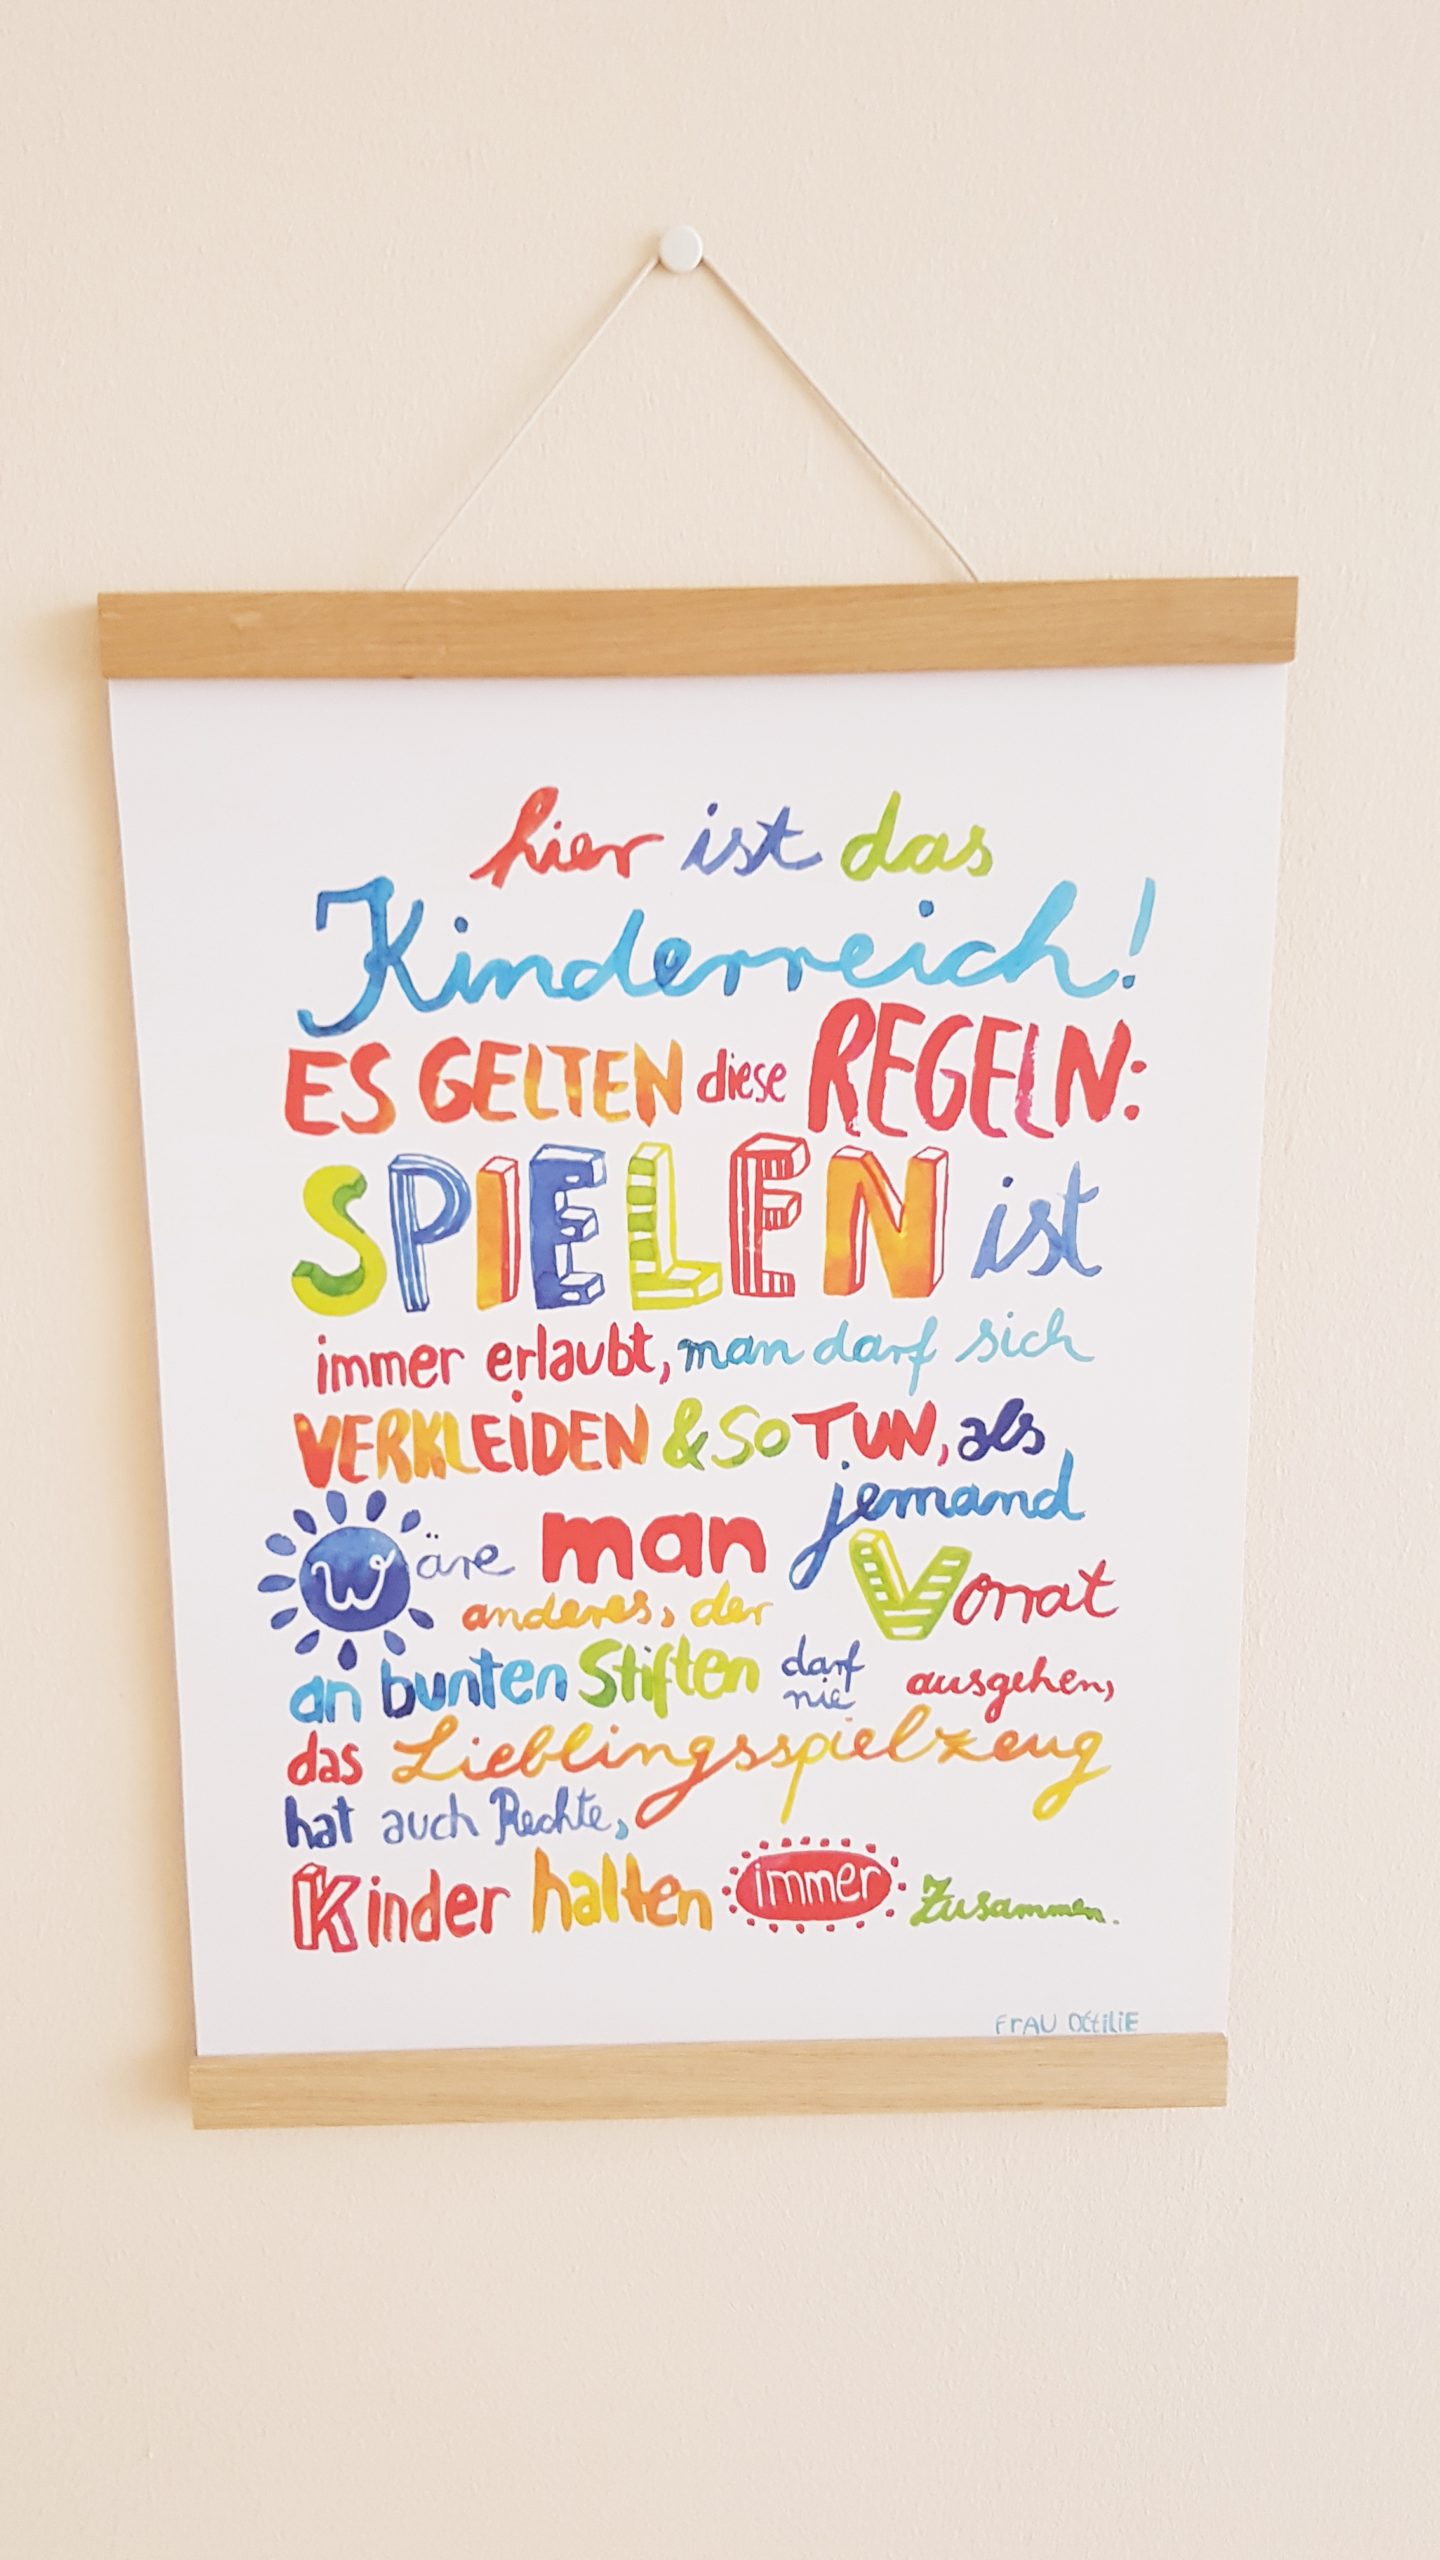 hier ist das
Kinderreich!
ES GELTEN diese REGELN:
SPIELEN ist
immer erlaubt, man darf sich
VERKLEIDEN & SO TUN, als
wäre man jemand
anderes, der Vorrat
an bunten Stiften darf nie ausgehen,
das Lieblingsspielzeug
hat auch Rechte,
Kinder halten immer zusammen.
FrAU OttiliE